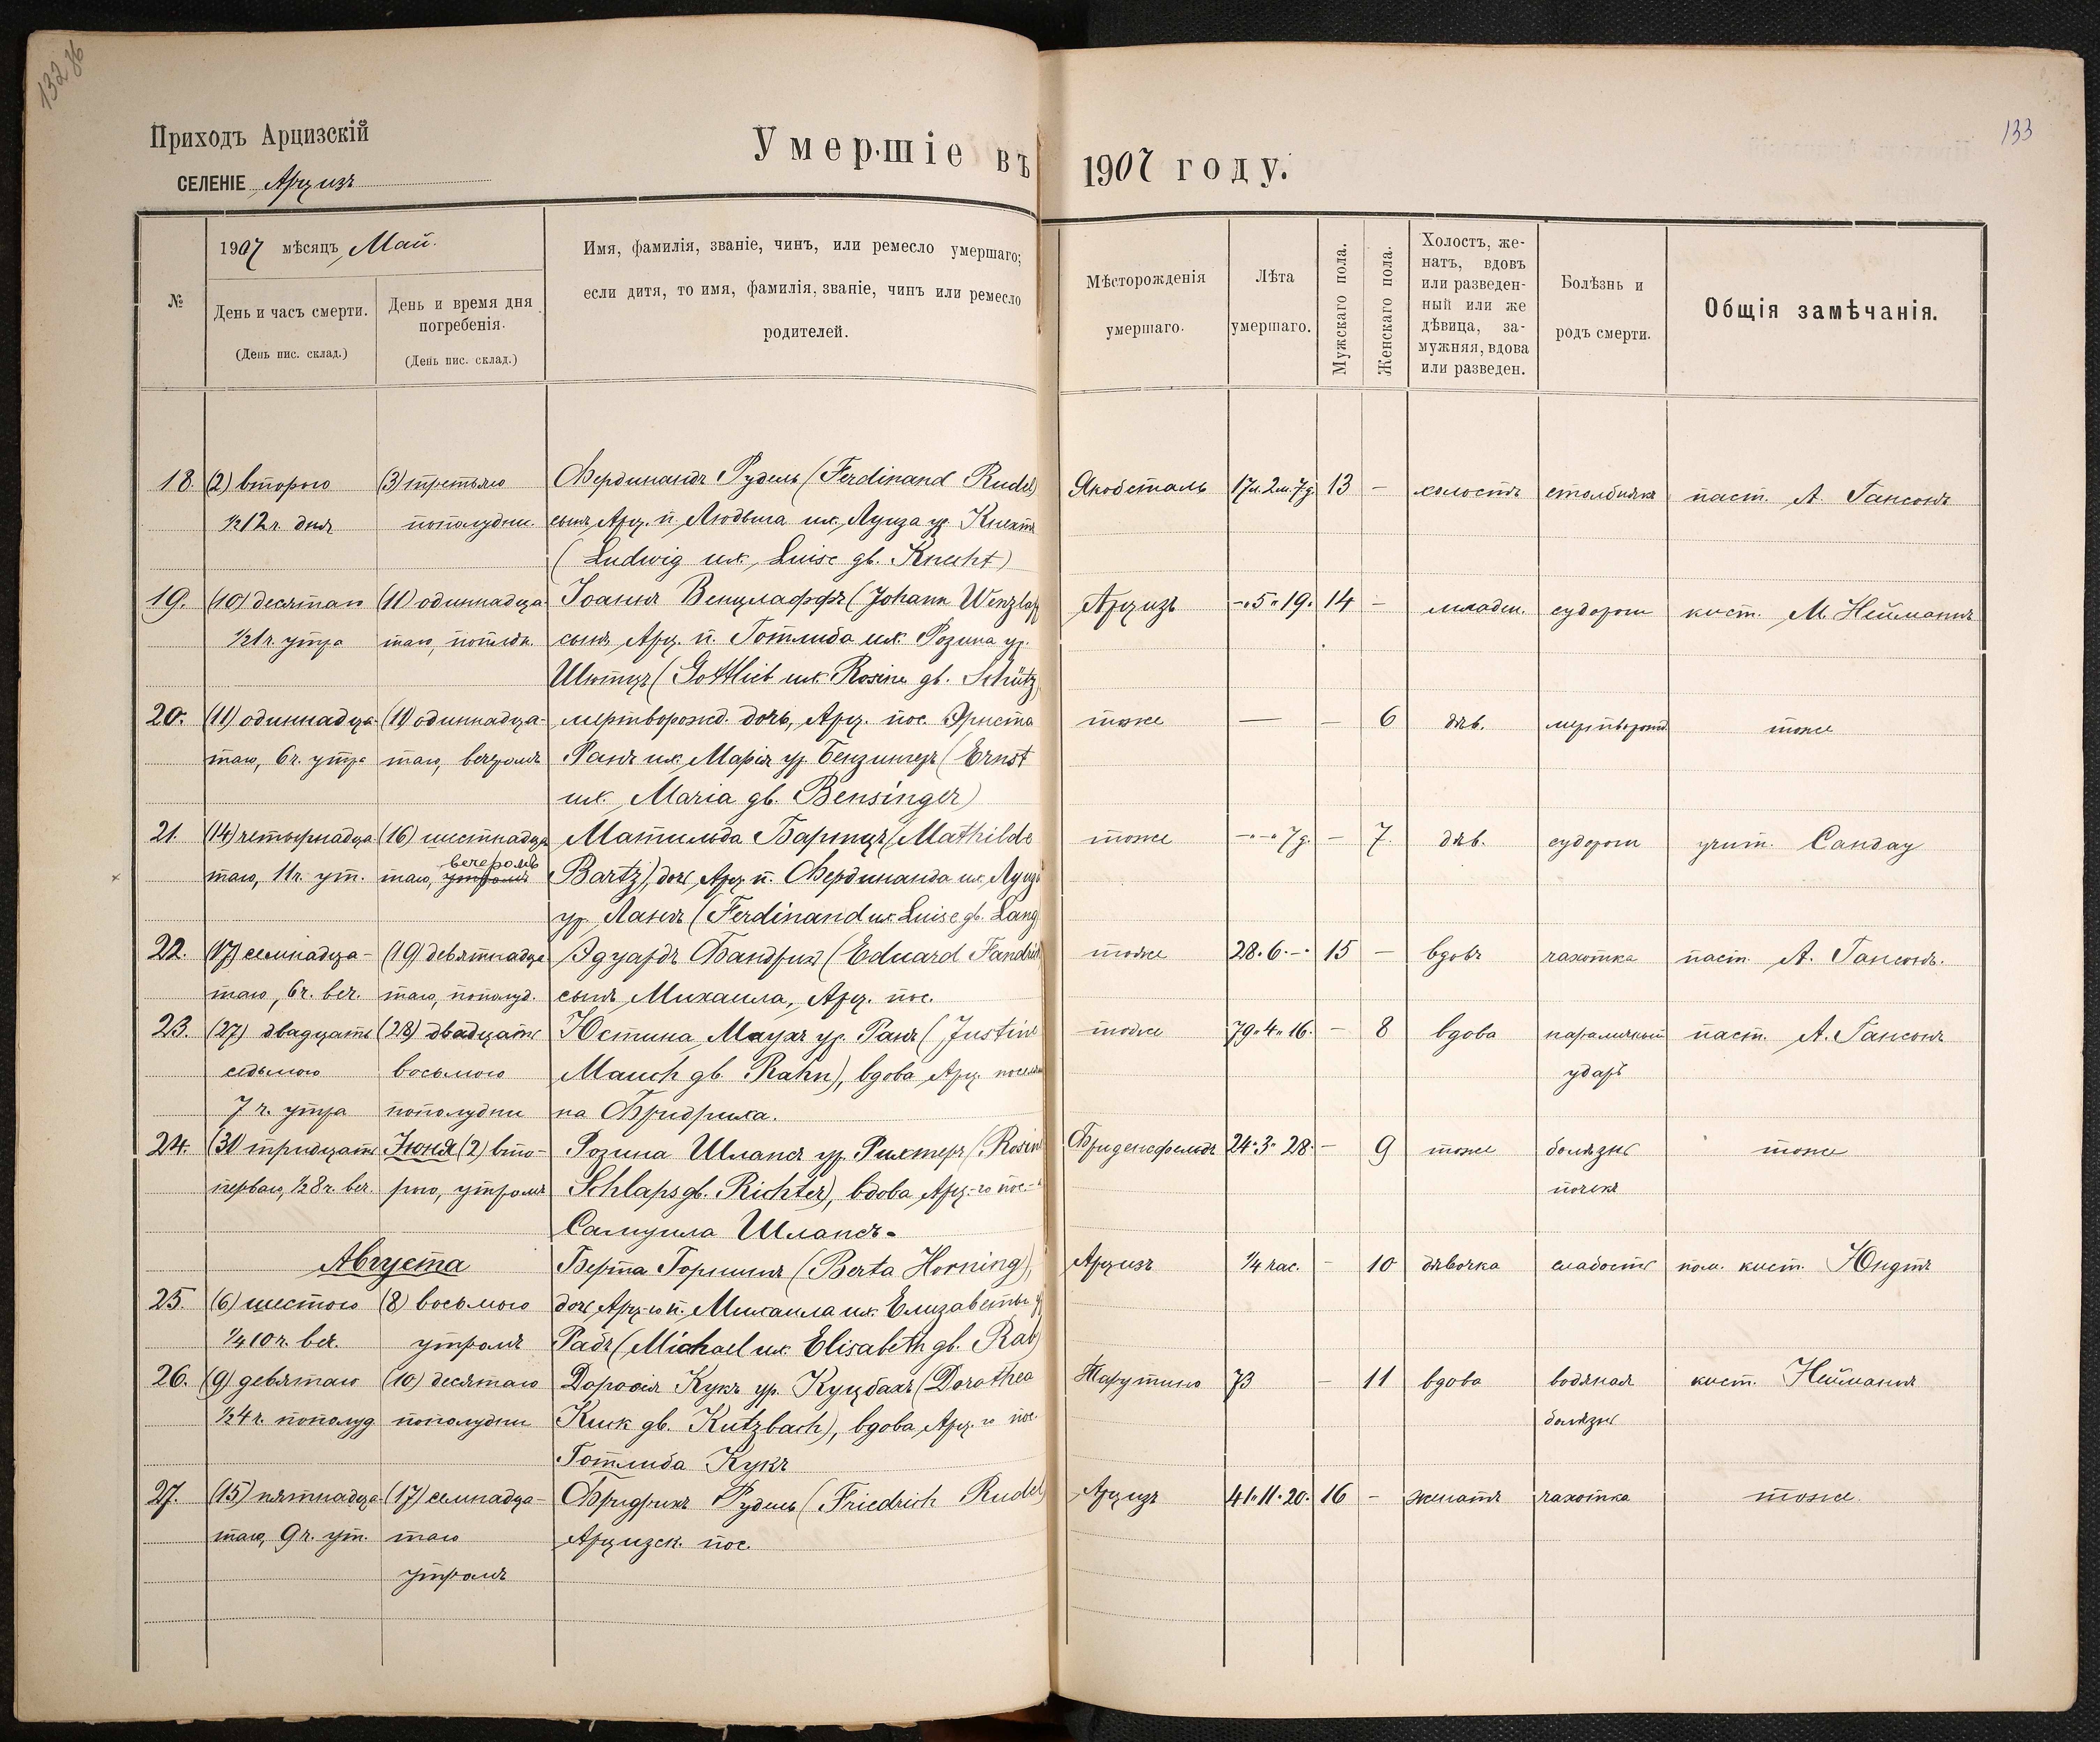 132 об
133
Приходъ Арцизскій
СЕЛЕНІЕ Арцизъ
Умершіе въ 1907 году.
№
1907 мѣсяцъ Май.
День и часъ смерти.
(День пис. склад.)
День и время дня
погребенія.
(День пис. склад.)
Имя, фамилія, званіе, чинъ, или ремесло умершаго;
если дитя, то имя, фамилія, званіе, чинъ или ремесло
родителей.
Мѣсторожденія
умершаго.
Лѣта
умершаго.
Мужскаго пола.
Женскаго пола.
Холостъ, же-
натъ, вдовъ
или разведен-
ный или же
дѣвица, за-
мужняя, вдова
или разведен.
Болѣзнь и
родъ смерти.
Общія замѣчанія.
18. (2) второго (3) третьяго Фердинандъ Рудель (Ferdinand Rudel) Якобсталь 17л. 2м. 7д. 13 – холостъ столбнякъ паст. А. Гансонъ
½12 ч. дня пополудни. сынъ Арц. п. Людвига и ж. Луиза ур. Кнехтъ
(Ludwig и ж. Luise gb. Knecht)
19. (10) десятаго (11) одиннадца Іоаннъ Венцлаффъ (Johann Wenzlaff Арцизъ –"5"19. 14 – младен. судороги кист. М. Нейманнъ
½1 ч. утра таго, пополдн. сынъ Арц. п. Готлиба и ж. Розина ур.
Шютцъ (Gottlieb и ж. Rosine gb. Schütz
20. (11) одиннадца- (11) одиннадца- мертворожд. дочь, Арц. пос. Эрнста тоже — – 6 дѣв. мертворожд. тоже
таго, 6 ч. утра таго, вечеромъ Ранъ и ж. Марія ур. Бензингеръ (Ernst
и ж. Maria gb. Bensinger)
21. (14) четырнадца- (16) шестнадца Матильда Бартцъ (Mathilde тоже –"–"7д. – 7. дѣв. судороги учит. Сандау
вечеромъ
таго, 11 ч. ут. таго, утромъ Bartz), дочь Арц. п. Фердинанда и ж. Луиза
ур. Лангъ (Ferdinand и ж. Luise gb. Lang
22. (17) семнадца- (19) девятнадца Эдуардъ Фандрих (Eduard Fandrich тоже 28. 6. –" 15 – вдовъ чахотка паст. А. Гансонъ.
таго, 6 ч. веч. таго, пополуд. сынъ Михаила, Арц. пос.
23. (27) двадцать (28) двадцать Юстина Маухъ ур. Ранъ (Justine тоже 79"4"16. – 8 вдова параличный паст. А. Гансонъ
седьмого восьмого Mauch gb. Rahn), вдова Арц. поселяни ударъ
7 ч. утра пополудни на Фридриха.
24. (31) тридцать Іюня (2) вто- Розина Шлапсъ ур. Рихтеръ (Rosine Фриденсфельдъ 24"3"28. – 9 тоже болѣзнь тоже
перваго, ½8 ч. веч. рого, утромъ Schlaps gb. Richter), вдова Арц-го пос. почекъ
Самуила Шлапсъ.
Августа Берта Горнингъ (Berta Horning), Арцизъ ¼ час. – 10 дѣвочка слабость пом. кист. Юндтъ
25. (6) шестого (8) восьмого дочь Арц-го п. Михаила и ж. Елизаветы у
¼10 ч. веч. утромъ Рабъ (Michael и ж. Elisabeth gb. Rab)
26. (9) девятаго (10) десятаго Дороѳія Кукъ ур. Куцбахъ (Dorothea Тарутино 73 – 11 вдова водяная кист. Нейманнъ
½4 ч. пополуд пополудни Kuck gb. Kutzbach), вдова Арц-го пос. болѣзнь
Готлиба Кукъ
27. (15) пятнадца- (17) семнадца- Фридрихъ Рудель (Friedrich Rudel Арцизъ 41"11"20. 16 – женатъ чахотка тоже.
таго, 9 ч. ут. таго Арцизск. пос.
утромъ